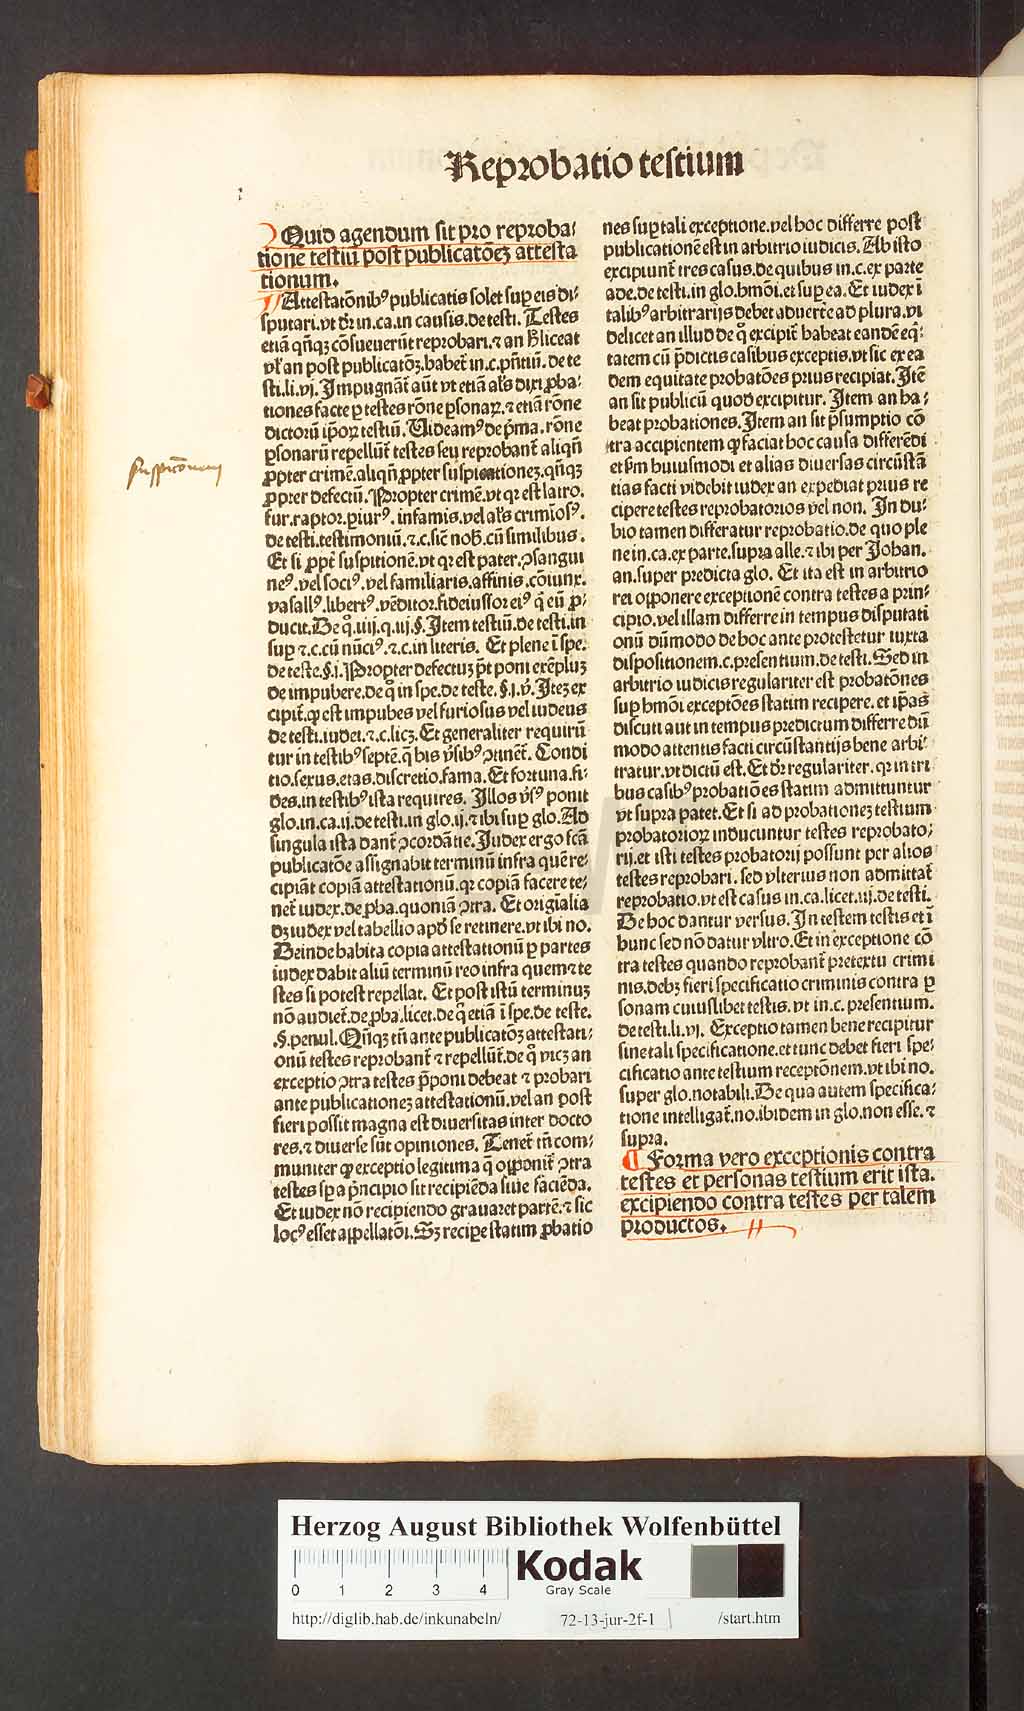 Reprobatio testium
Quid agendum sit pro reproba⸗
tione testiū post publicatōeꝫ attesta
tionum.
¶ Attestatōnibꝰ publicatis solet suꝑ eis di⸗
sputari.vt dr̄ in.ca.in causis.de testi. Testes
etiā qn̄qꝫ cōsueuerūt reprobari.⁊ an h̄ liceat
vl̓ an post publicatōꝫ.habet̄ in.c.pn̄tiū.de te
sti.li.vj. Impugnāt̄ aūt vt etiā al̓s dixi ꝓba⸗
tiones facte ꝑ testes rōne ꝑsonaꝝ.⁊ etiā rōne
dictoꝝ ip̄oꝝ testiū. Videamꝰ de pͥma. rōne
ꝑsonarū repellūt̄ testes seu reprobant̄ aliqn̄
ꝓpter crimē.aliqn̄ ꝓpter suspicationeꝫ.qn̄qꝫ
ꝓpter defectū. Propter crimē.vt qꝛ est latro.
fur.raptor.ꝑiurꝰ. infamis.vel al̓s crimīosꝰ.
de testi.testimoniū.⁊.c.sic̄ nob̄.cū similibus.
Et si ꝓpt̄ suspitionē.vt qꝛ est pater.ꝯsangui
neꝰ.vel sociꝰ.vel familiaris.affinis.cōiunx.
vasallꝰ.libertꝰ.vēditor.fideiussor eiꝰ qͥ eū ꝓ⸗
ducit. De qͦ.iiij.q.iij.§. Item testiū.de testi.in
suꝑ ⁊.c.cū nūciꝰ.⁊.c.in literis. Et plene ī spe.
de teste.§.i. Propter defectuꝫ pt̄ poni exēpluꝫ
de impubere.de qͦ in spe.de teste.§.i.v̄. Iteꝫ ex
cipit̄.ꝙ est impubes vel furiosus vel iudeus
de testi.iudei.⁊.c.licꝫ. Et generaliter requirū
tur in testibꝰ septē.q̄ his v̄sibꝰ ꝯtinent̄. Condi
tio.sexus.etas.discretio.fama. Et fortuna.fi⸗
des.in testibꝰ ista requires. Illos v̄sꝰ ponit
glo.in.ca.ij.de testi.in glo.ij.⁊ ibi suꝑ glo. Ad
singula ista dant̄ ꝯcordātie. Iudex ergo fcā
publicatōe assignabit terminū infra quē re⸗
cipiāt copiā attestationū.qꝛ copiā facere te⸗
net̄ iudex.de ꝓba.quoniā ꝯtra. Et origīalia
dꝫ iudex vel tabellio apd̄ se retinere.vt ibi no.
Deinde habita copia attestationū ꝑ partes
iudex dabit aliū terminū reo infra quem ⁊ te
stes si potest repellat. Et post istū terminuꝫ
nō audiet̄.de ꝓba.licet.de qͦ etiā ī spe.de teste.
.§.penul. Qn̄qꝫ tn̄ ante publicatōꝫ attestati⸗
onū testes reprobant̄ ⁊ repellūt̄.de qͦ vicꝫ an
exceptio ꝯtra testes p̄poni debeat ⁊ probari
ante publicationeꝫ attestationū.vel an post
fieri possit magna est diuersitas inter docto
res.⁊ diuerse sūt opiniones. Tenet̄ tn̄ com⸗
muniter ꝙ exceptio legitima q̄ opponit̄ ꝯtra
testes sꝑ a pͥncipio sit recipiēda siue faciēda.
Et iudex nō recipiendo grauaret partē.⁊ sic
locꝰ esset appellatōi. Sꝫ recipe statim ꝓbatio
nes suꝑ tali exceptione.vel hoc differre post
publicationē est in arbitrio iudicis. Ab isto
excipiunt̄ tres casus.de quibus in.c.ex parte
ade.de testi.in glo.hmōi.et suꝑ ea. Et iudex ī
talibꝰ arbitrarijs debet aduertēe ad plura.vi
delicet an illud de qͦ excipit̄ habeat eandē eq̄⸗
tatem cū p̄dictis casibus exceptis.vt sic ex ea
dem equitate probatōes prius recipiat. Itē
an sit publicū quod excipitur. Item an ha⸗
beat probationes. Item an sit p̄sumptio cō
tra accipientem ꝙ faciat hoc causa differēdi
et fm̄ huiusmodi et alias diuersas circūstā
tias facti videbit iudex an expediat prius re
cipere testes reprobatorios vel non. In du⸗
bio tamen differatur reprobatio.de quo ple
ne in.ca.ex parte.supra alle.⁊ ibi per Johan.
an.super predicta glo. Et ita est in arbitrio
rei opponere exceptionē contra testes a prin⸗
cipio.vel illam differre in tempus disputati
onū dūmodo de hoc ante protestetur iuxta
dispositionem.c.presentium.de testi. Sed in
arbitrio iudicis regulariter est probatōnes
suꝑ hmōi exceptōes statim recipere.et ip̄as
discuti aut in tempus predictum differre dū
modo attentis facti circūstantijs bene arbi⸗
tratur.vt dictū est. Et dr̄ regulariter.qꝛ in tri
bus casibꝰ probatiōes statim admittuntur
vt supra patet. Et si ad probationeꝫ testium
probatorioꝝ inducuntur testes reprobato⸗
rij.et isti testes probatorij possunt per alios
testes reprobari. sed vlterius non admittat̄
reprobatio.vt est casus in.ca.licet.iij.de testi.
De hoc dantur versus. In testem testis et ī
hunc sed nō datur vltro. Et in exceptione cō
tra testes quando reprobant̄ pretextu crimi
nis.debꝫ fieri specificatio criminis contra ꝑ
sonam cuiuslibet testis. vt in.c. presentium.
de testi.li.vj. Exceptio tamen bene recipitur
sine tali specificatione.et tunc debet fieri spe⸗
cificatio ante testium receptōnem.vt ibi no.
super glo.notabili. De qua autem specifica⸗
tione intelligat̄.no.ibidem in glo.non esse.⁊
supra.
¶ Forma vero exceptionis contra
testes et personas testium erit ista.
excipiendo contra testes per talem
productos.
Herzog August Bibliothek Wolfenbüttel
0 1 2 3 4
Kodak
Gray Scale
http://diglib.hab.de/inkunabeln/ 72-13-jur-2f-1 /start.htm